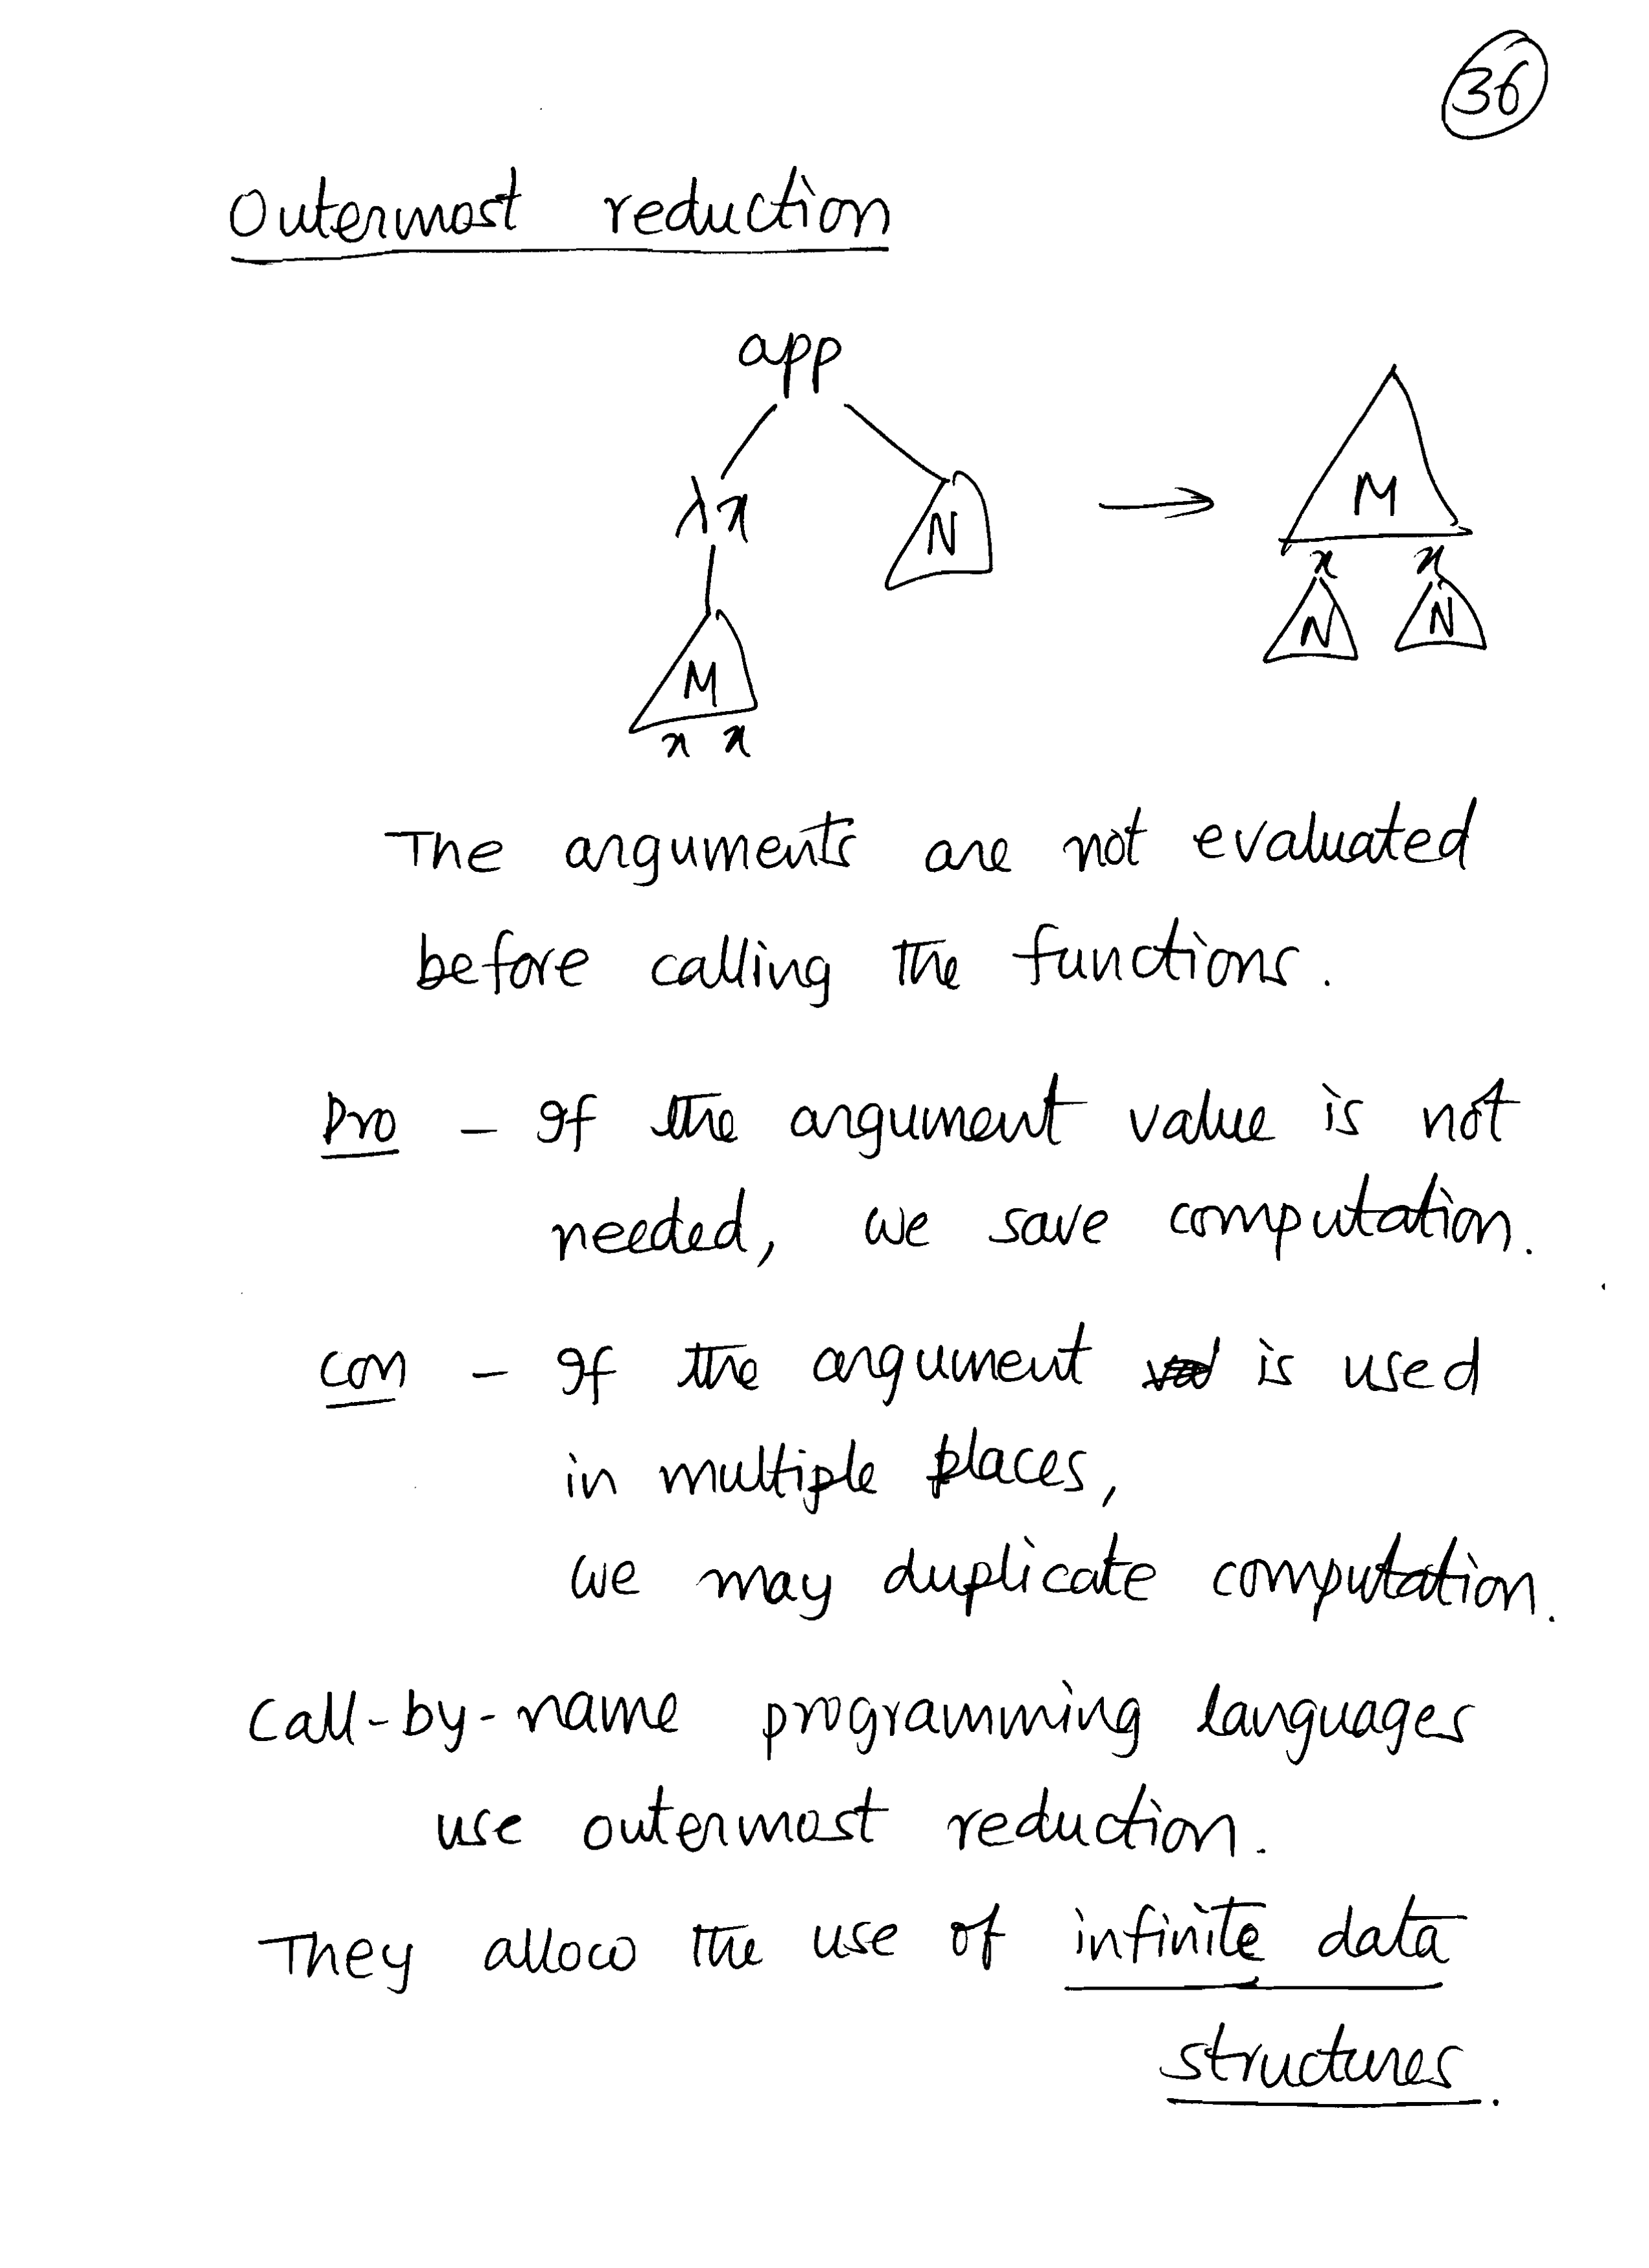 36
Outermost reduction
app
λx
N
→
M
x x
N N
M
x x
The arguments are not evaluated
before calling the functions.
Pro - If the argument value is not
needed, we save computation.
Con - If the argument is used
in multiple places,
we may duplicate computation.
Call-by-name programming languages
use outermost reduction.
They allow the use of infinite data
structures.